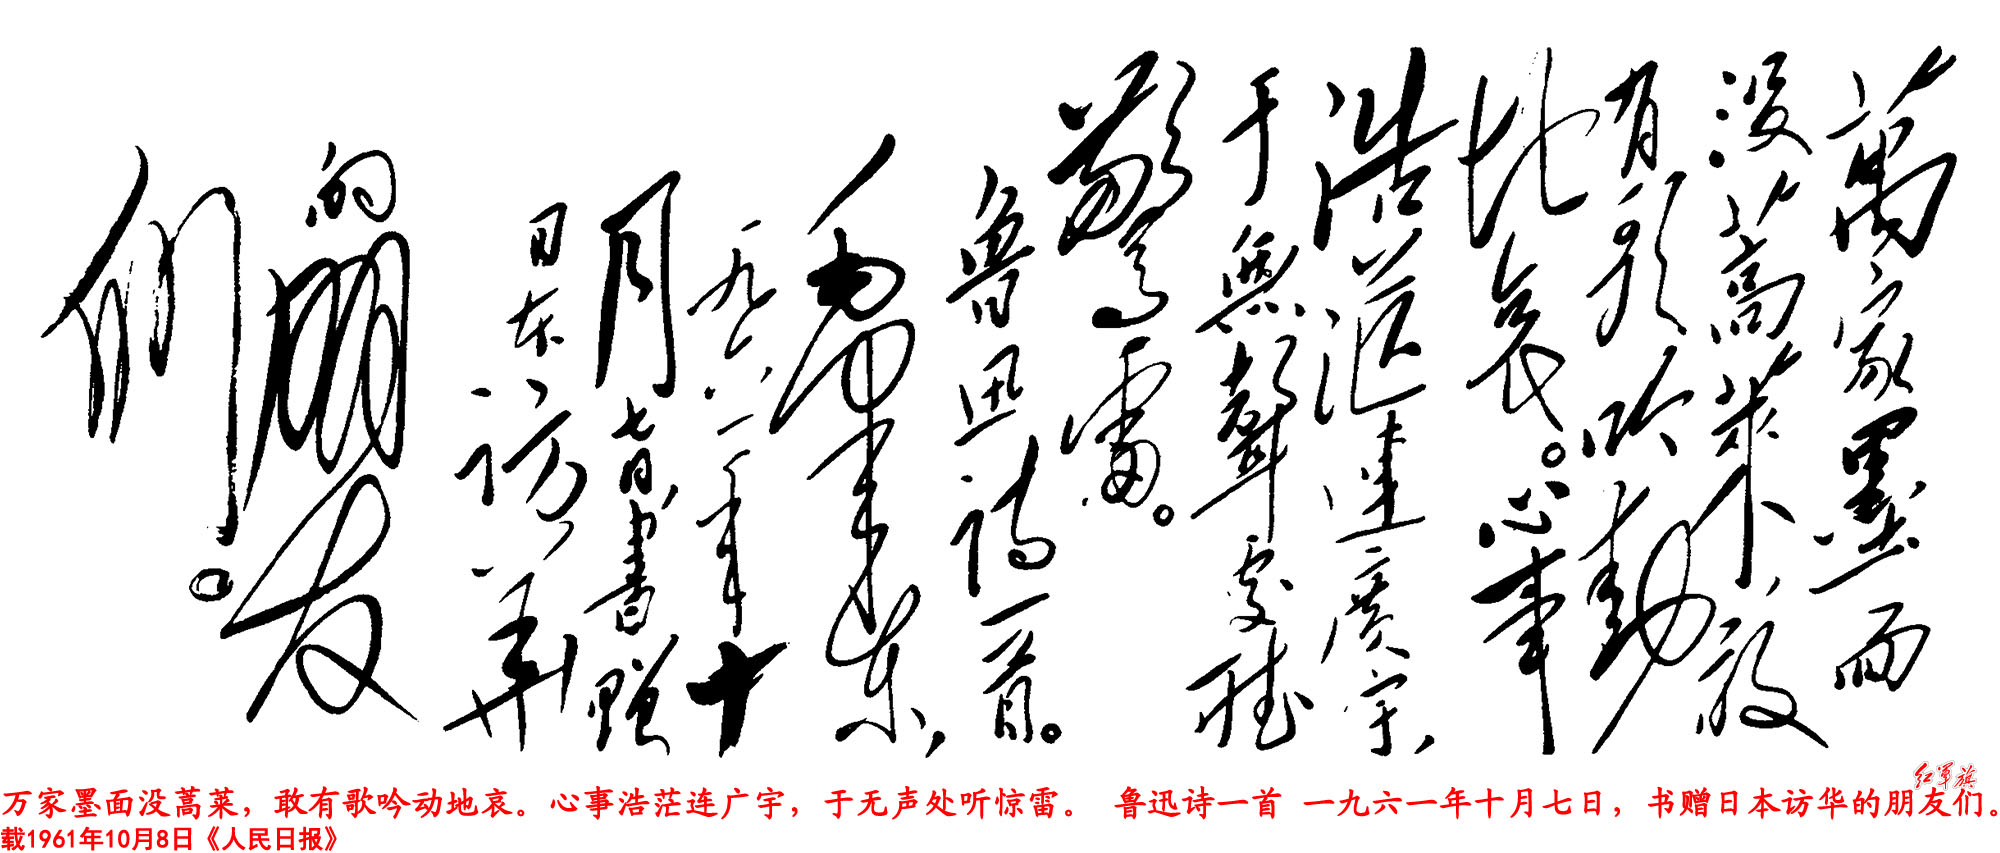 萬家墨面
没蒿萊，敢
有歌吟動
地哀。心事
浩茫連廣宇，
于無聲處聽
驚雷。
魯迅詩一首。
毛澤東，
一九六一年十
月七日書贈
日本訪華
的朋友
們。
红军旗
万家墨面没蒿莱，敢有歌吟动地哀。心事浩茫连广宇，于无声处听惊雷。 鲁迅诗一首 一九六一年十月七日，书赠日本访华的朋友们。
载1961年10月8日《人民日报》